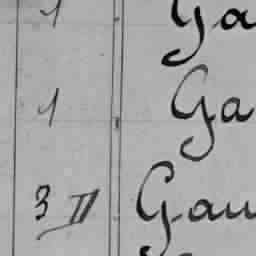 1 Ga
1 Ga
3 II Gau